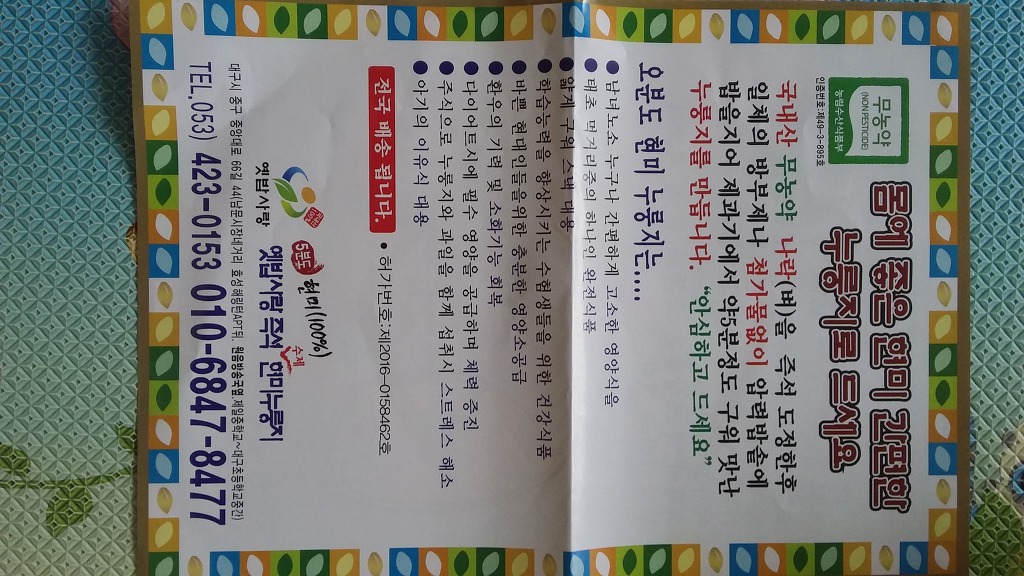 무농약
(NON PESTICIDE)
농림수산식품부
인증번호:제49-3-895호
몸에 좋은 현미 간편한
누룽지로 드세요
국내산 무농약 나락(벼)을 즉석 도정한후
일체의 방부제나 첨가물없이 압력밥솥에
밥을지어 제과기에서 약5분정도 구워 맛난
누룽지를 만듭니다. “안심하고 드세요”
오분도 현미 누룽지는....
● 남녀노소 누구나 간편하게 고소한 영양식을
● 태초 먹거리중의 하나인 완전식품
● 얇게 구워 스낵 대용
● 학습능력을 향상시키는 수험생들을 위한 건강식품
● 바쁜 현대인들을위한 충분한 영양소공급
● 환우의 기력 및 소화기능 회복
● 다이어트시에 필수 영양을 공급하며 체력 증진
● 주식으로 누룽지와 과일을 함께 섭취시 스트레스 해소
● 아기의 이유식 대용
전국 배송 됩니다.
• 허가번호:제2016-0158462호
옛밥사랑
5분도 현미(100%)
수제
옛밥사랑 즉석 현미누룽지
대구시 중구 중앙대로 66길 44(남문시장대가리 효성 해링턴APT뒤, 원음방송국옆,제일중학교~대구초등학교중간)
TEL.053) 423-0153 010-6847-8477